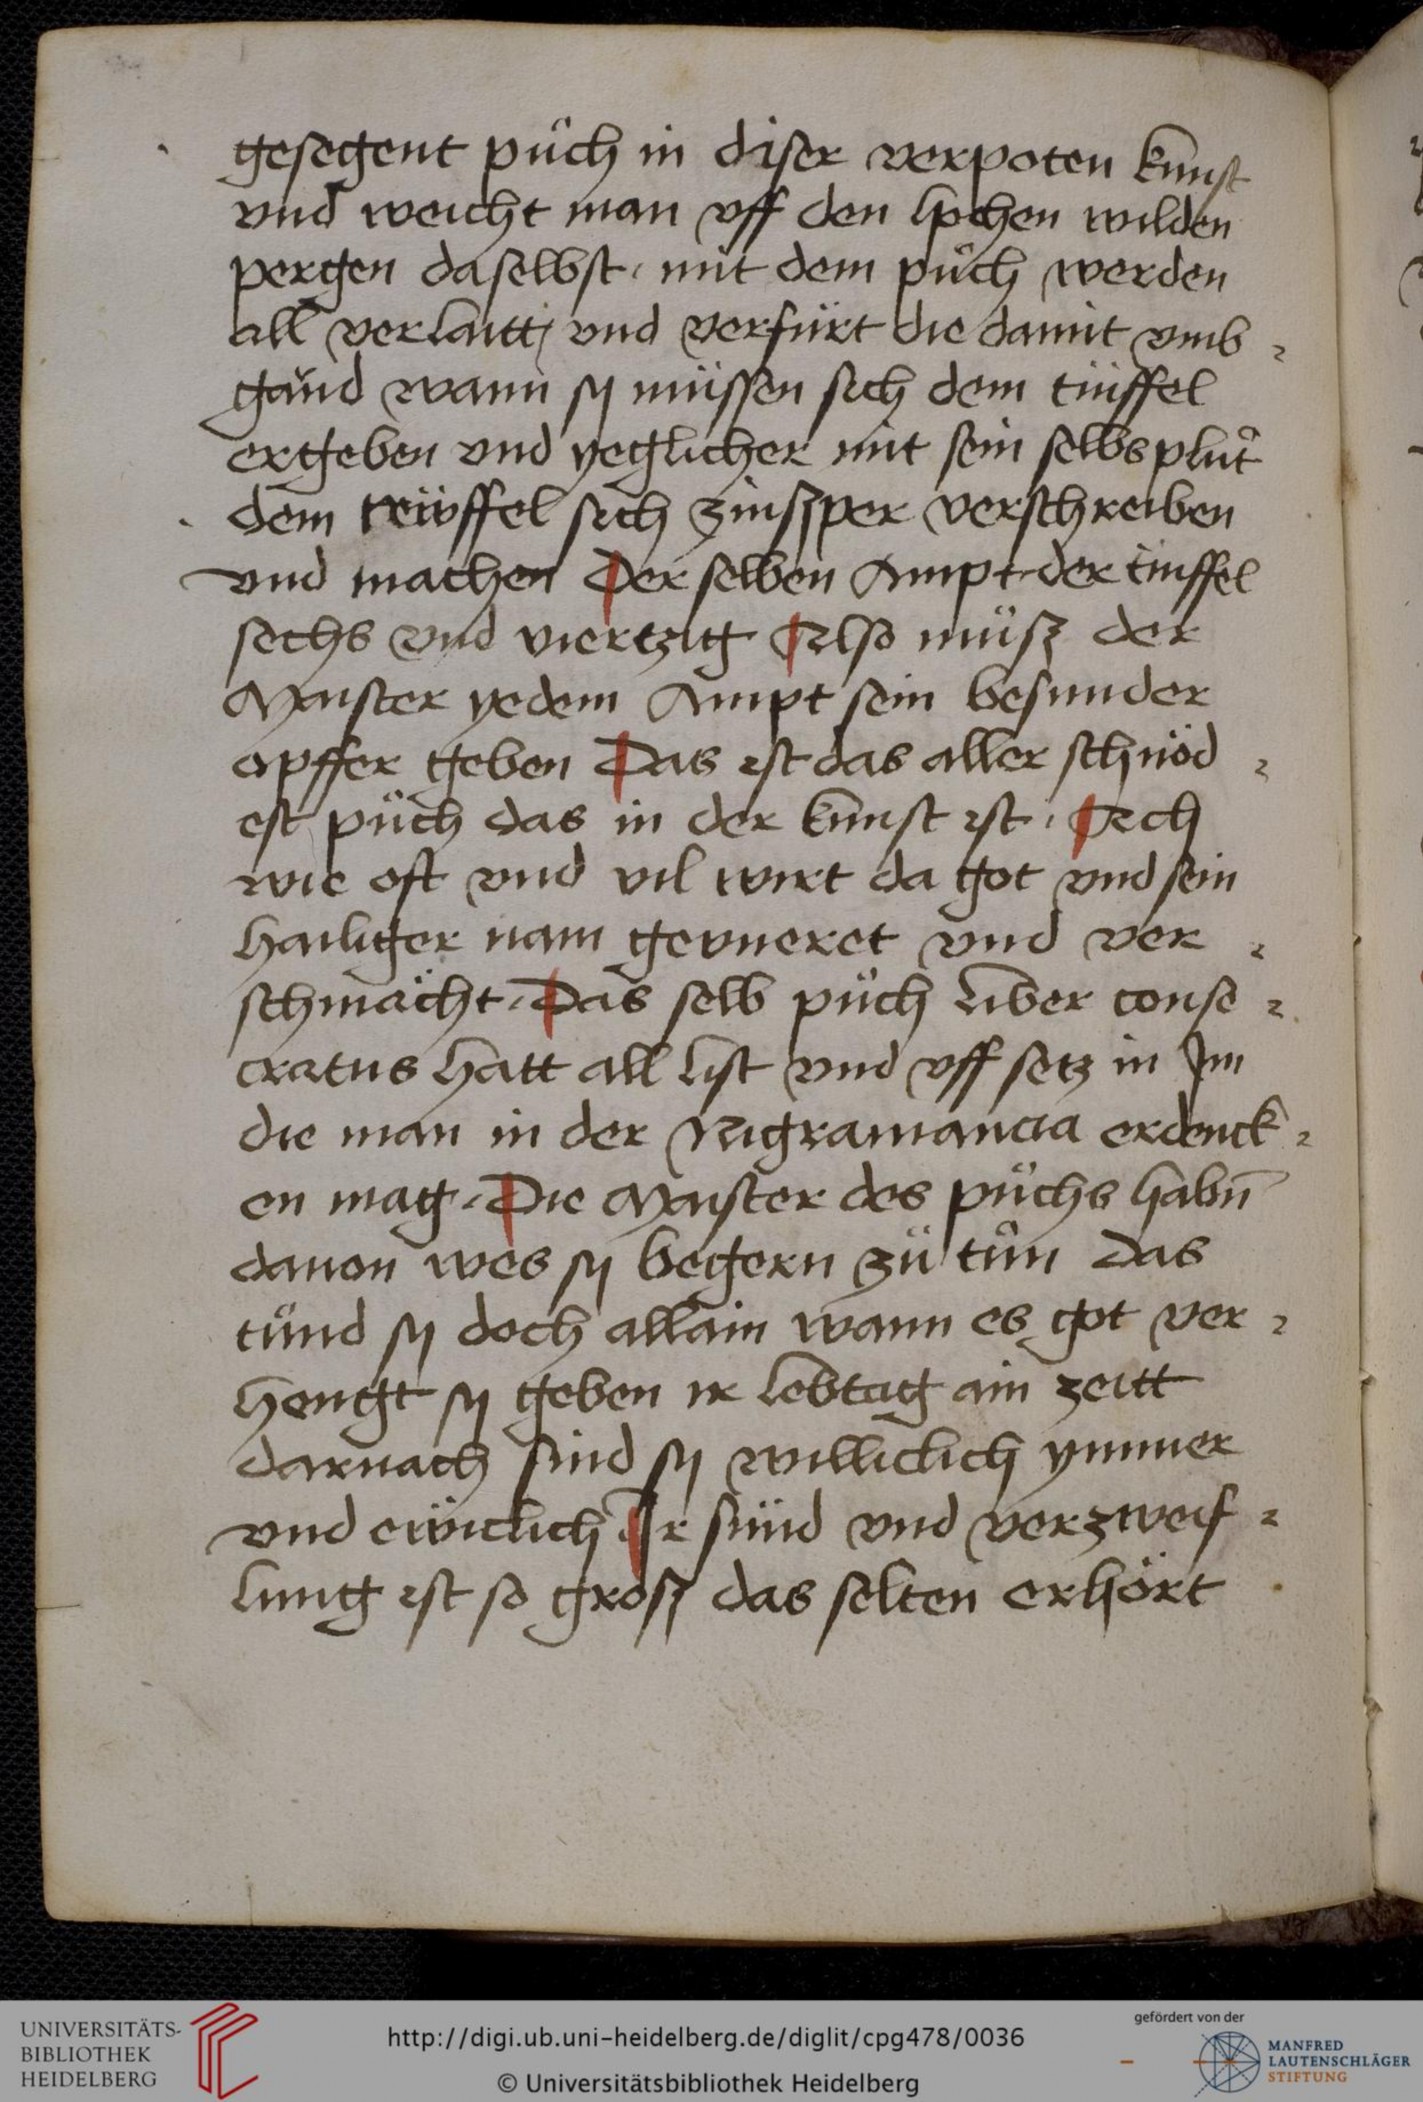 gesegent půch in diser verpoten kunst
vnd weicht man vff den hochen wilden
pergen daselbst. mit dem půch werden
all verlaitt vnd verfürt die damit vmb=
gänd wann sÿ müssen sich dem tüffel
ergeben vnd yeglicher mit sein selbs plůt
dem teüffel sich zinszper verschreiben
vnd machen Der selben Ampt der tüffel
sechs vnd viertzig Also můsz der
Maister yedem Ampt sein besunder
opffer geben Das ist das aller schnöd=
est půch das in der kunst ist. Ach
wie oft vnd vil wirt da got vnd sein
hailiger nam gevneret vnd ver=
schmächt. Das selb půch liber conse=
cratus hatt all list vnd vff setz in Im
die man in der Nigramancia erdenck=
en mag. Die Maister des půchs habn̄
dauon wes sÿ begern zů tůn das
tůnd sÿ doch allain wann es got ver=
hengt sÿ geben ir lebtag ain zeitt
darnach sind sÿ williclich ymmer
vnd ewiclich Ir sünd vnd verzweif=
lung ist so grosz das selten erhört
UNIVERSITÄTS-
BIBLIOTHEK
HEIDELBERG
http://digi.ub.uni-heidelberg.de/diglit/cpg478/0036
© Universitätsbibliothek Heidelberg
gefördert von der
MANFRED
LAUTENSCHLÄGER
STIFTUNG